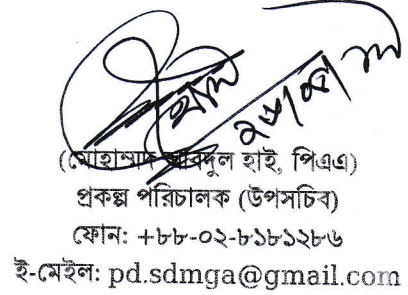 (মোহাম্মদ আবদুল হাই, পিএএ)
প্রকল্প পরিচালক (উপসচিব)
ফোন: +৮৮-০২-৮১৮১২৮৬
ই-মেইল: pd.sdmga@gmail.com